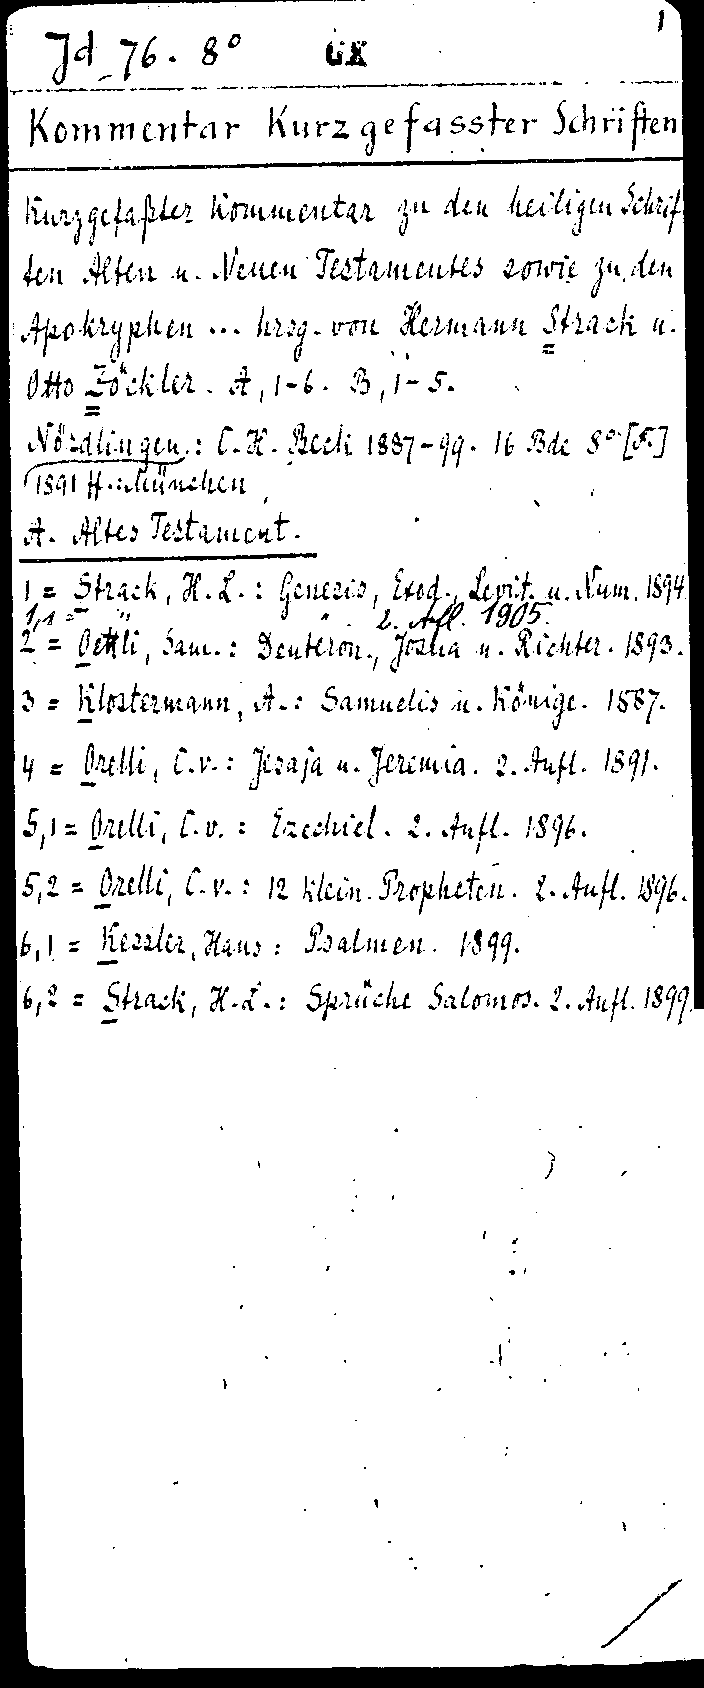 1
Jd 76. 8° GX
Kommentar Kurzgefasster Schriften
Kurzgefaßter Kommentar zu den heiligen Schrif-
ten Alten u. Neuen Testamentes sowie zu den
Apokryphen ... hrsg. von Hermann Strack u.
Otto Zöckler. A, 1-6. B, 1-5.
Nördlingen: C. H. Beck 1887-99. 16 Bde 8° [F.]
1891 ff.: München
A. Altes Testament.
1 = Strack, H. L.: Genesis, Exod., Levit. u. Num. 1894
1,1 = " " 2. Afl. 1905.
2 = Oettli, Sam.: Deuteron., Josua u. Richter. 1893.
3 = Klostermann, A.: Samuelis u. Könige. 1887.
4 = Orelli, C. v.: Jesaja u. Jeremia. 2. Aufl. 1891.
5,1 = Orelli, C. v.: Ezechiel. 2. Aufl. 1896.
5,2 = Orelli, C. v.: 12 klein. Propheten. 2. Aufl. 1896.
6,1 = Kessler, Hans: Psalmen. 1899.
6,2 = Strack, H. L.: Sprüche Salomos. 2. Aufl. 1899.